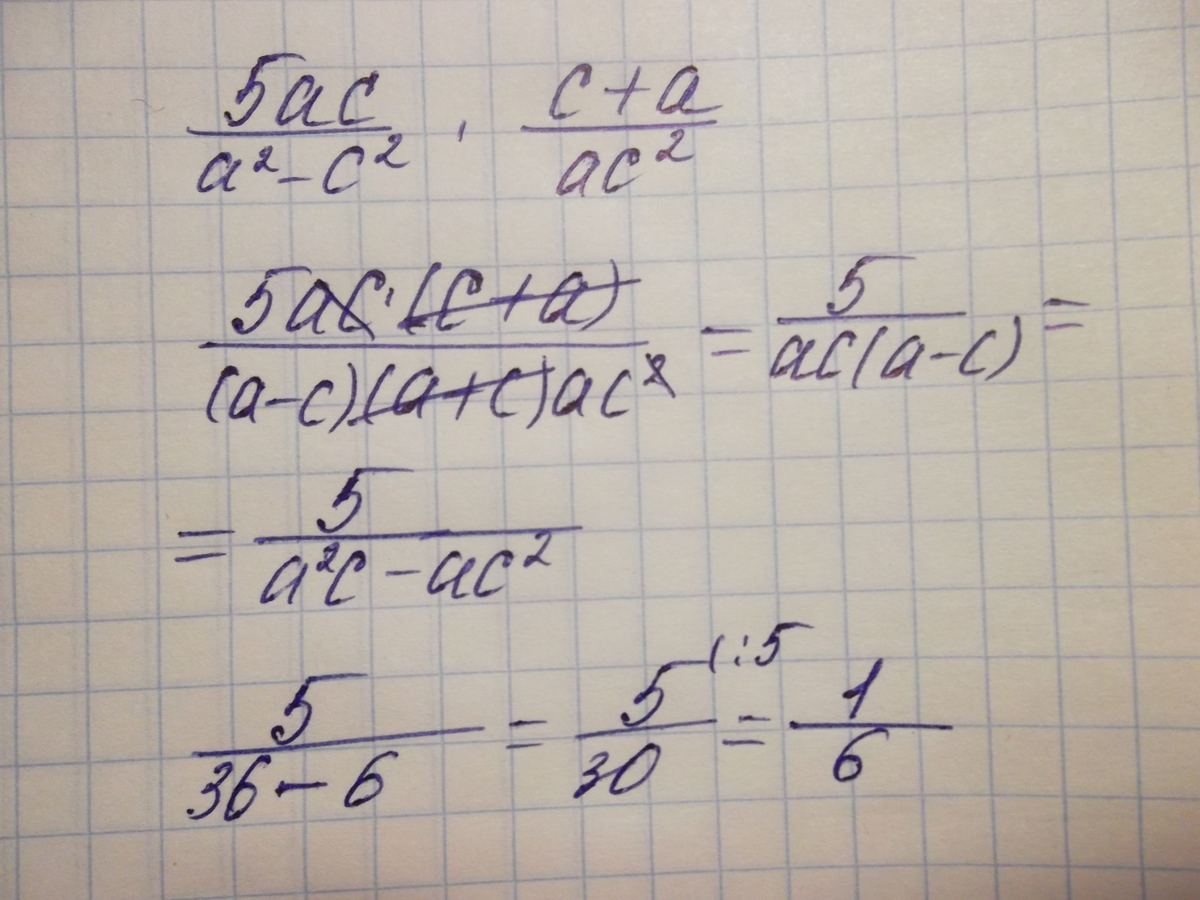 5ac/(a² - c²) · (c + a)/(ac²)
5ac · (c + a)/((a - c)(a + c)ac²) = 5/(ac(a - c)) =
= 5/(a²c - ac²)
5/(36 - 6) = 5/30 (:5 = 1/6